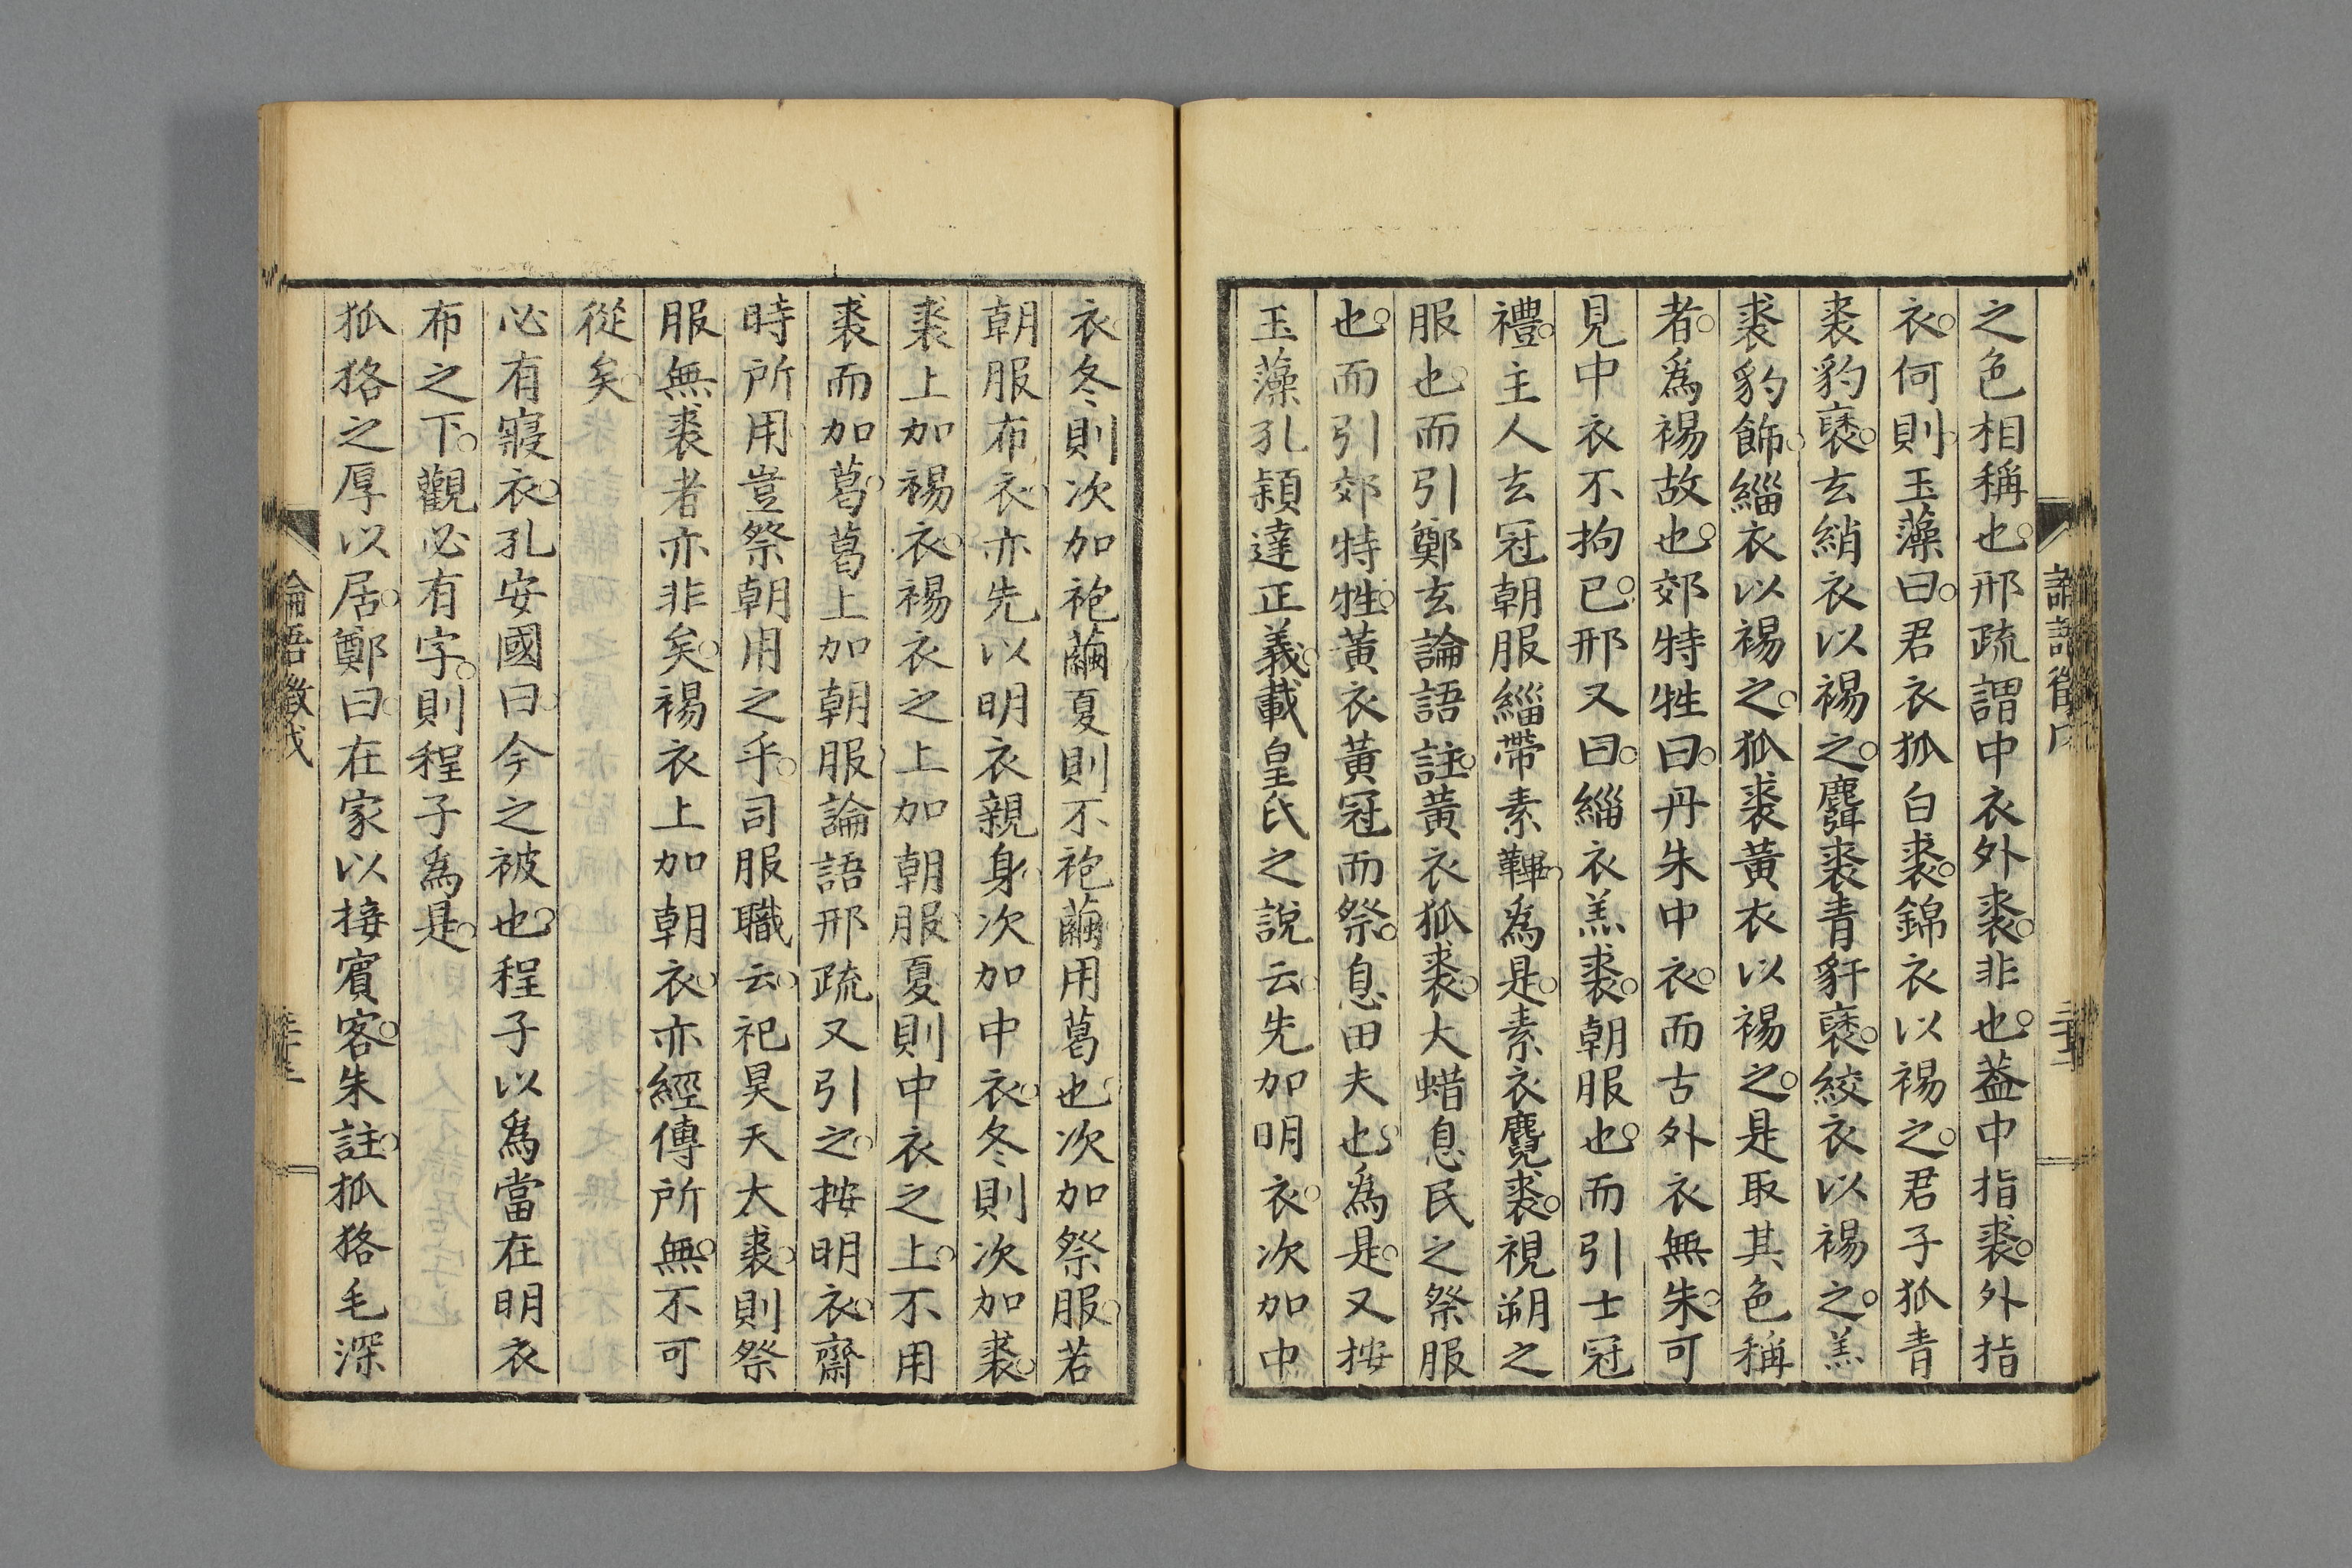 之色相稱也。邢疏謂中衣外裘。非也。蓋中指裘。外指
衣。何則。玉藻曰。君衣狐白裘。錦衣以裼之。君子狐青
裘豹褎。玄綃衣以裼之。麛裘青豻褎。絞衣以裼之。羔
裘豹飾。緇衣以裼之。狐裘黃衣以裼之。是取其色稱
者。爲裼故也。郊特牲曰。丹朱中衣。而古外衣無朱。可
見中衣不拘已。邢又曰。緇衣羔裘。朝服也。而引士冠
禮。主人玄冠朝服緇帶素韠。爲是。素衣麑裘。視朔之
服也。而引鄭玄論語註。黃衣狐裘。大蜡息民之祭服
也。而引郊特牲。黃衣黃冠而祭。息田夫也。爲是。又按
玉藻孔穎達正義。載皇氏之說云。先加明衣。次加中
論語徵戊
衣。冬則次加袍繭。夏則不袍繭。用葛也。次加祭服。若
朝服布衣。亦先以明衣親身。次加中衣。冬則次加裘。
裘上加裼衣。裼衣之上加朝服。夏則中衣之上。不用
裘而加葛。葛上加朝服。論語邢疏又引之。按明衣。齋
時所用。豈祭朝用之乎。司服職云。祀昊天大裘。則祭
服無裘者亦非矣。裼衣上加朝衣。亦經傳所無。不可
從矣。
必有寢衣。孔安國曰。今之被也。程子以爲當在明衣
布之下。觀必有字。則程子爲是。
狐狢之厚以居。鄭曰。在家以接賓客。朱註。狐狢毛深
論語徵戊